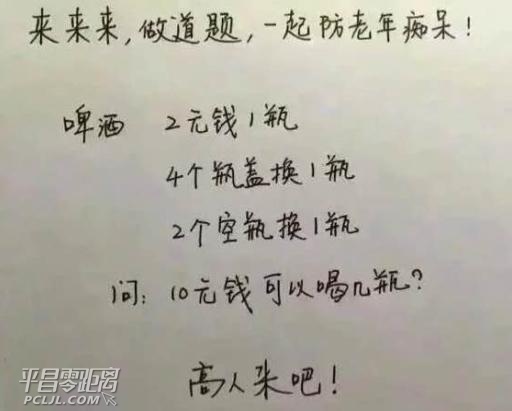 来来来,做道题,一起防老年痴呆!
啤酒 2元钱1瓶
4个瓶盖换1瓶
2个空瓶换1瓶
问: 10元钱可以喝几瓶?
高人来吧!
平昌零距离
PCLJL.COM